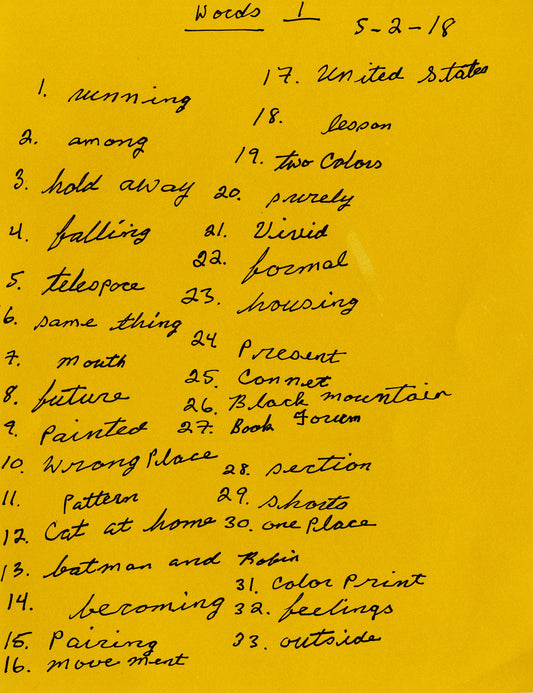 Words 1
5-2-18
1. running
2. among
3. hold away
4. falling
5. telespore
6. same thing
7. mouth
8. future
9. Painted
10. Wrong Place
11. Pattern
12. Cat at home
13. batman and Robin
14. becoming
15. Pairing
16. movement
17. United States
18. lesson
19. two Colors
20. surely
21. Vivid
22. formal
23. housing
24 Present
25. Connet
26. Black mountain
27. Book Forum
28. section
29. shorts
30. one Place
31. Color Print
32. feelings
33. outside